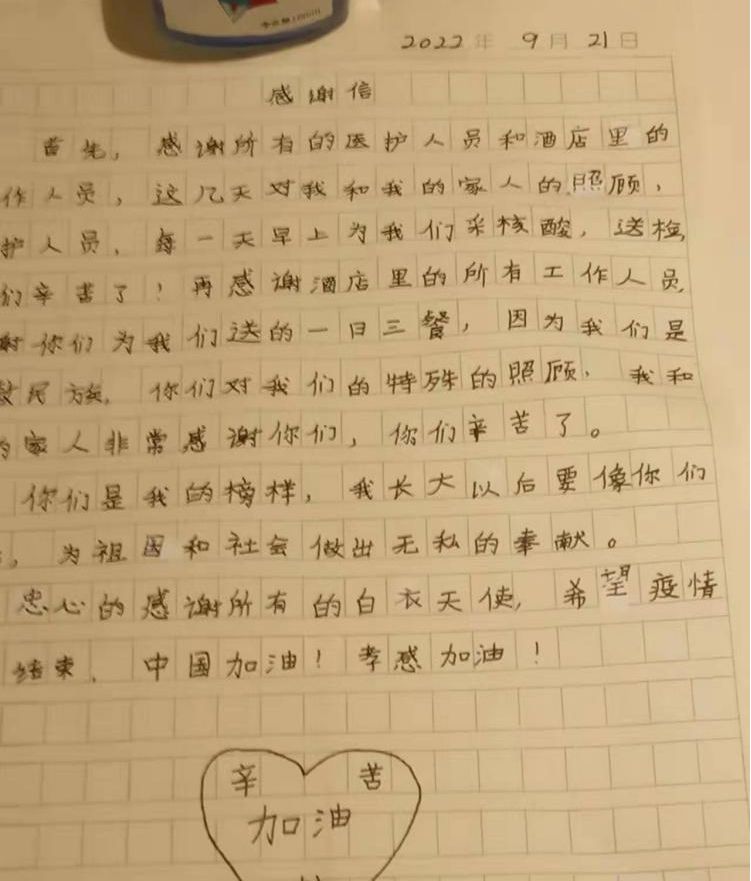 2022年 9月 21日
感谢信
首先，感谢所有的医护人员和酒店里的
作人员，这几天对我和我的家人的照顾，
护人员、每一天早上为我们采核酸，送检
们辛苦了！再感谢酒店里的所有工作人员，
谢你们为我们送的一日三餐，因为我们是
数民族，你们对我们的特殊的照顾，我和
的家人非常感谢你们，你们辛苦了。
你们是我的榜样，我长大以后要像你们
，为祖国和社会做出无私的奉献。
忠心的感谢所有的白衣天使，希望疫情
结束、中国加油！孝感加油！
辛 苦
加油